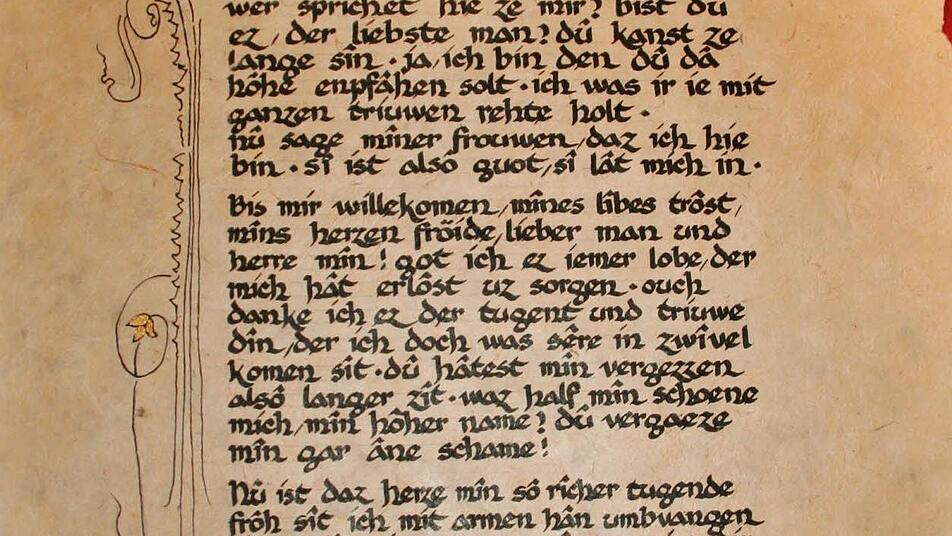 wer sprichet hie ze mir? bist du
ez, der liebste man? dû kanst ze
lange sîn · ja, ich bin den dû dâ
hôhe enpfâhen solt · ich was ir ie mit
ganzen triuwen rehte holt ·
nû sage mîner frouwen, daz ich hie
bin · sî ist alsô guot, sî lât mich in ·
Bis mir willekomen, mînes lîbes trôst,
mîns herzen fröide, lieber man und
herre mîn! got ich ez iemer lobe, der
mich hât erlôst uz sorgen · ouch
danke ich ez der tugent und triuwe
dîn, der ich doch was sêre in zwîvel
komen sît · dû hâtest mîn vergezzen
alsô langer zît · waz half mîn schoene
mich, mîn hôher name? dû vergaeze
mîn gar âne schame!
Nû ist daz herze mîn sô rîcher tugende
frôh sît ich mit armen hân umbvangen